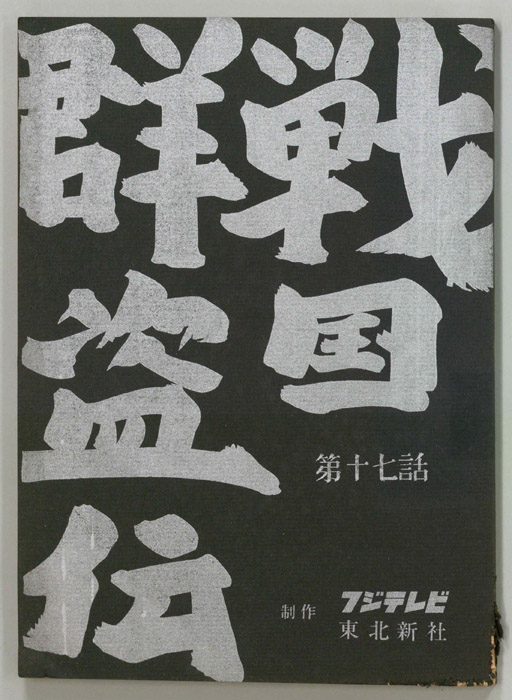 戦国
群盗伝
第十七話
制作 フジテレビ
東北新社